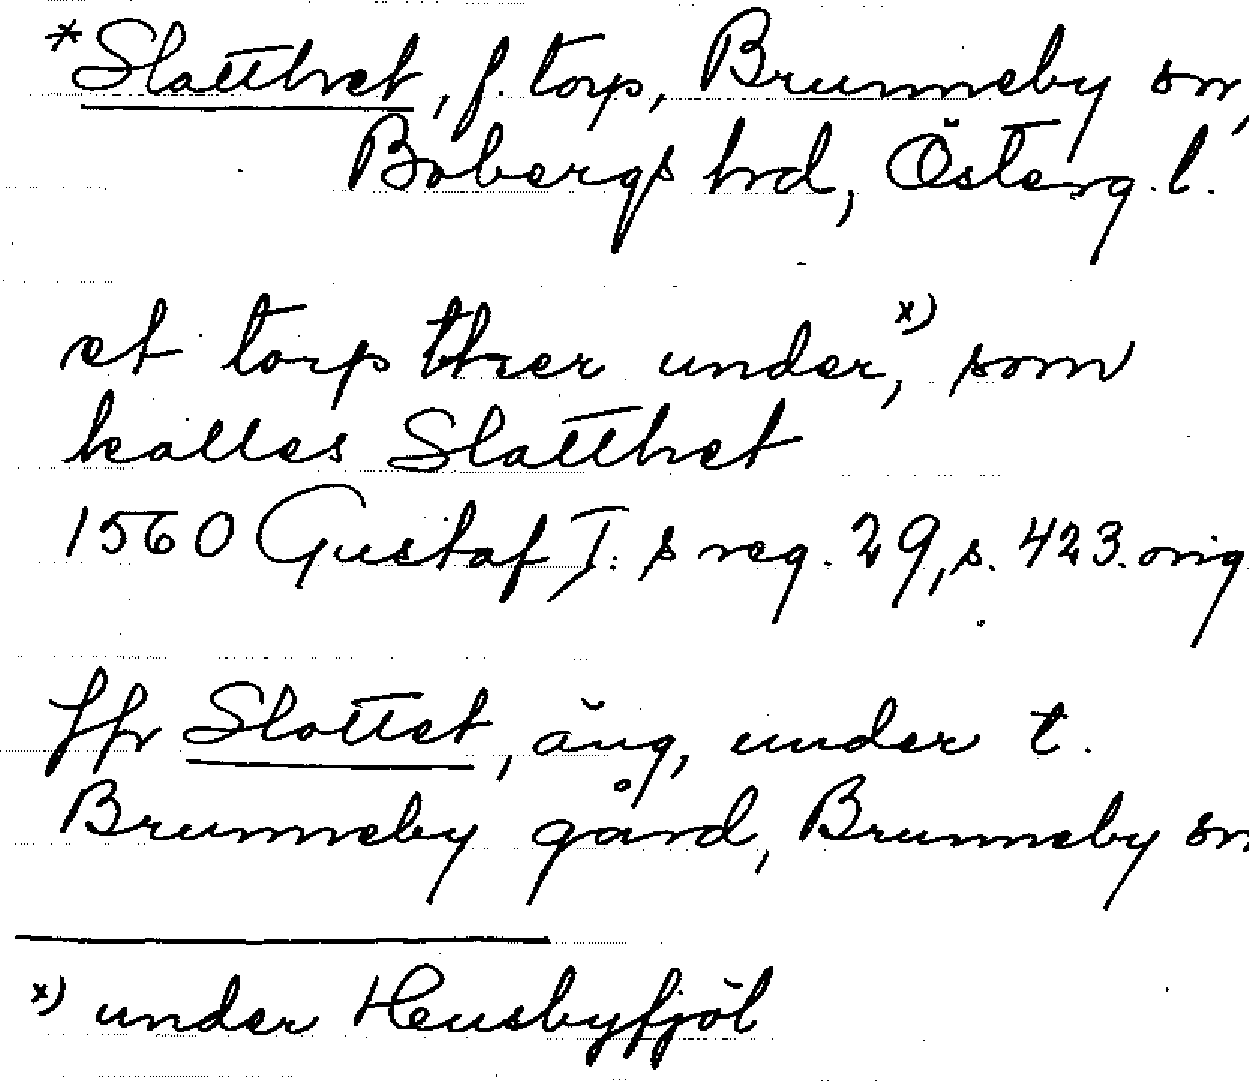 *Slatthet, f. torp, Brunneby sn,
Bobergs hrd, Österg. l.
et torp ther under,ˣ⁾ som
kalles Slatthet
1560 Gustaf I:s reg. 29, s. 423. orig
Jfr Slottet, äng, under t.
Brunneby gård, Brunneby sn
ˣ⁾ under Heusbyfjöl